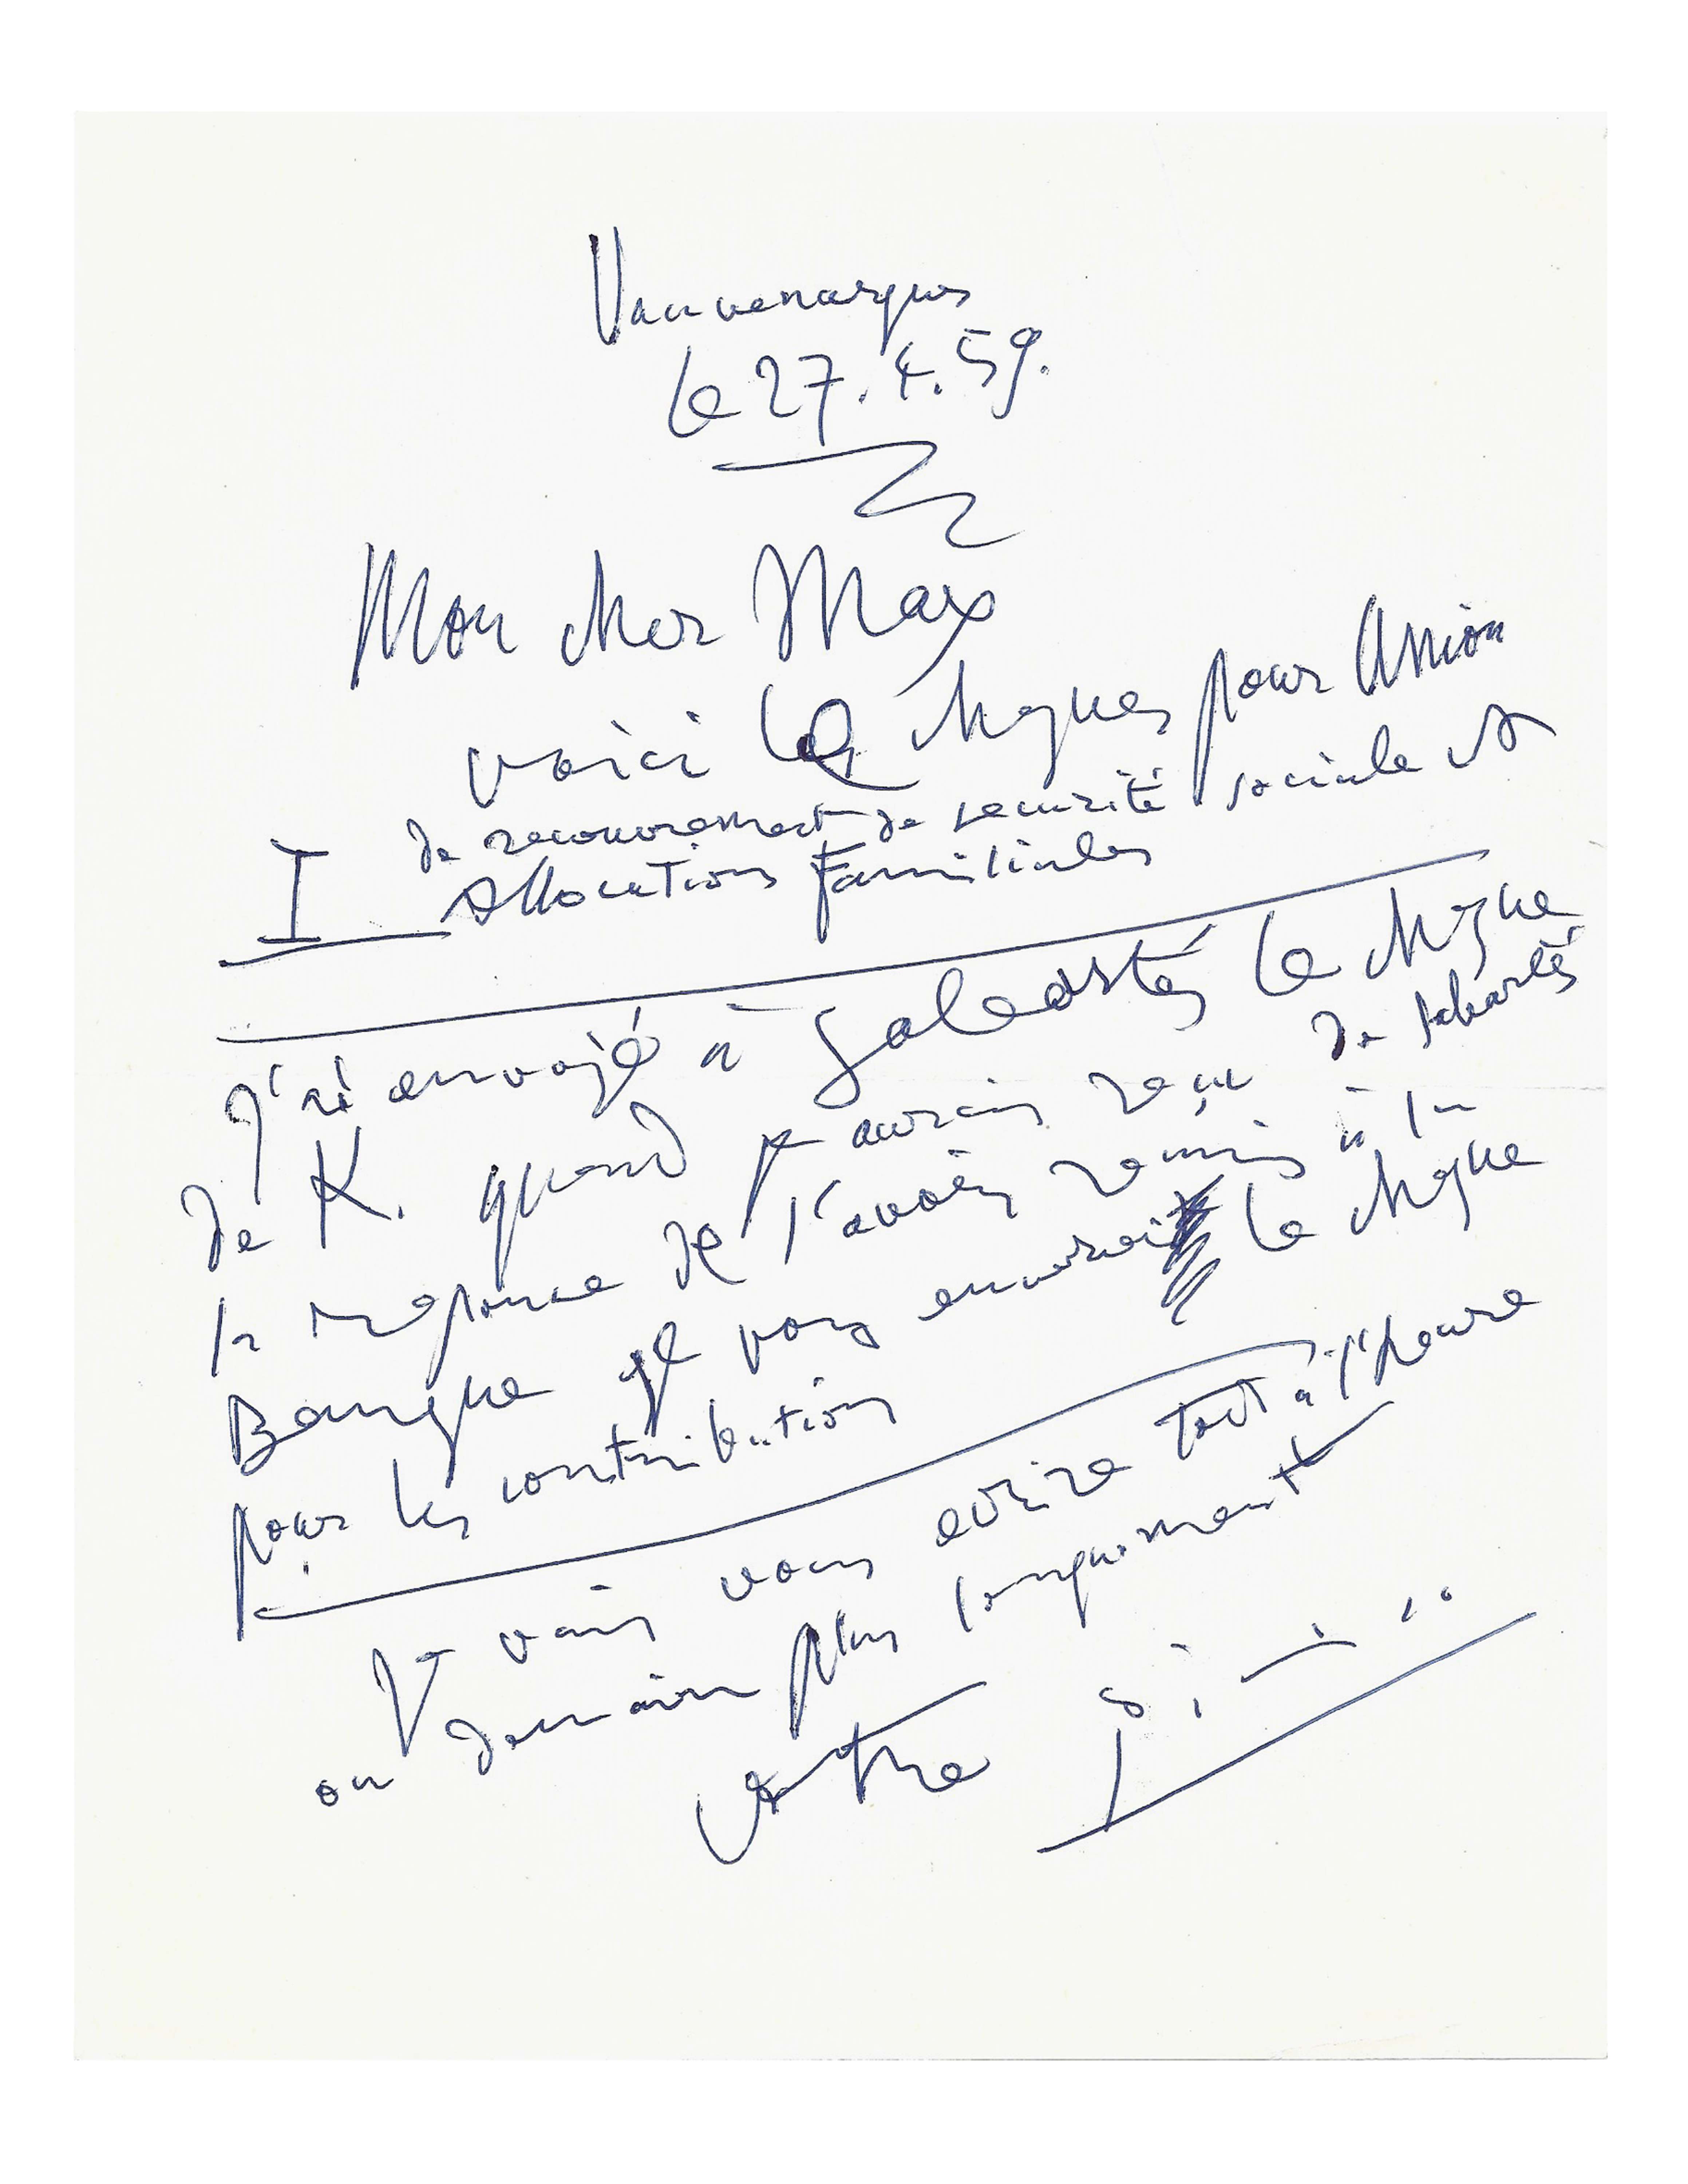 Vauvenargues
le 27.4.59.
Mon cher Max
voici le cheques pour Union
I de recouvrement de securité sociale et
Allocations Familiales
J'ai envoyé à Sabartés le cheque
de K. quand je aurais reçu de sabartés
la reponse de l'avoir remis à la
Banque je vous enverai le cheque
pour les contributions
Je vais vous ecrire tout à l'heure
ou demain plus longuement
votre